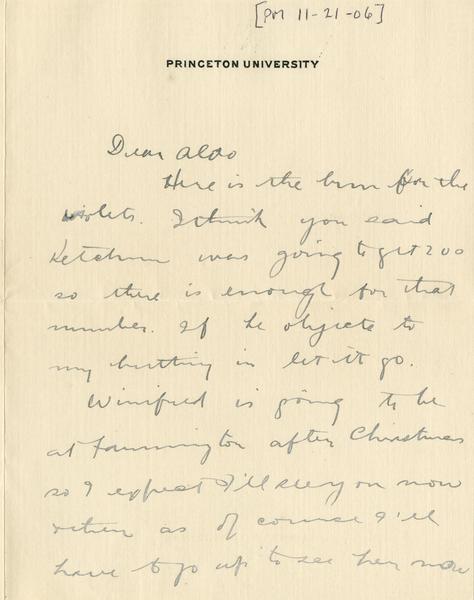 [PM 11-21-06]
PRINCETON UNIVERSITY
Dear Aldo
Here is the bun for the
violets. I think you said
Ketchum was going to get 200
so there is enough for that
number. If he objects to
my butting in let it go.
Winifred is going to be
at Farmington after Christmas
so I expect I'll stay on now
as of course I'll
have to go up to see her now